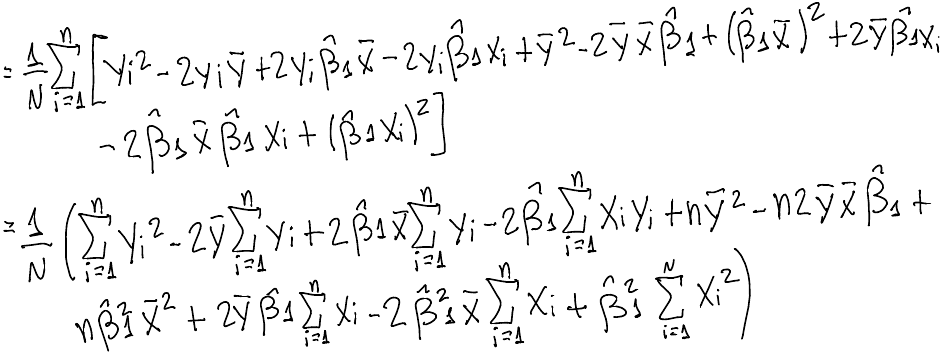 = 1/N Σ_{i=1}^{n} [ y_i² - 2y_i ȳ + 2y_i β̂₁ x̄ - 2y_i β̂₁ x_i + ȳ² - 2ȳ x̄ β̂₁ + (β̂₁ x̄)² + 2ȳ β̂₁ x_i
- 2β̂₁ x̄ β̂₁ x_i + (β̂₁ x_i)² ]
= 1/N ( Σ_{i=1}^{n} y_i² - 2ȳ Σ_{i=1}^{n} y_i + 2β̂₁ x̄ Σ_{i=1}^{n} y_i - 2β̂₁ Σ_{i=1}^{n} x_i y_i + nȳ² - n2ȳ x̄ β̂₁ +
nβ̂₁² x̄² + 2ȳ β̂₁ Σ_{i=1}^{n} x_i - 2β̂₁² x̄ Σ_{i=1}^{n} x_i + β̂₁² Σ_{i=1}^{N} x_i² )